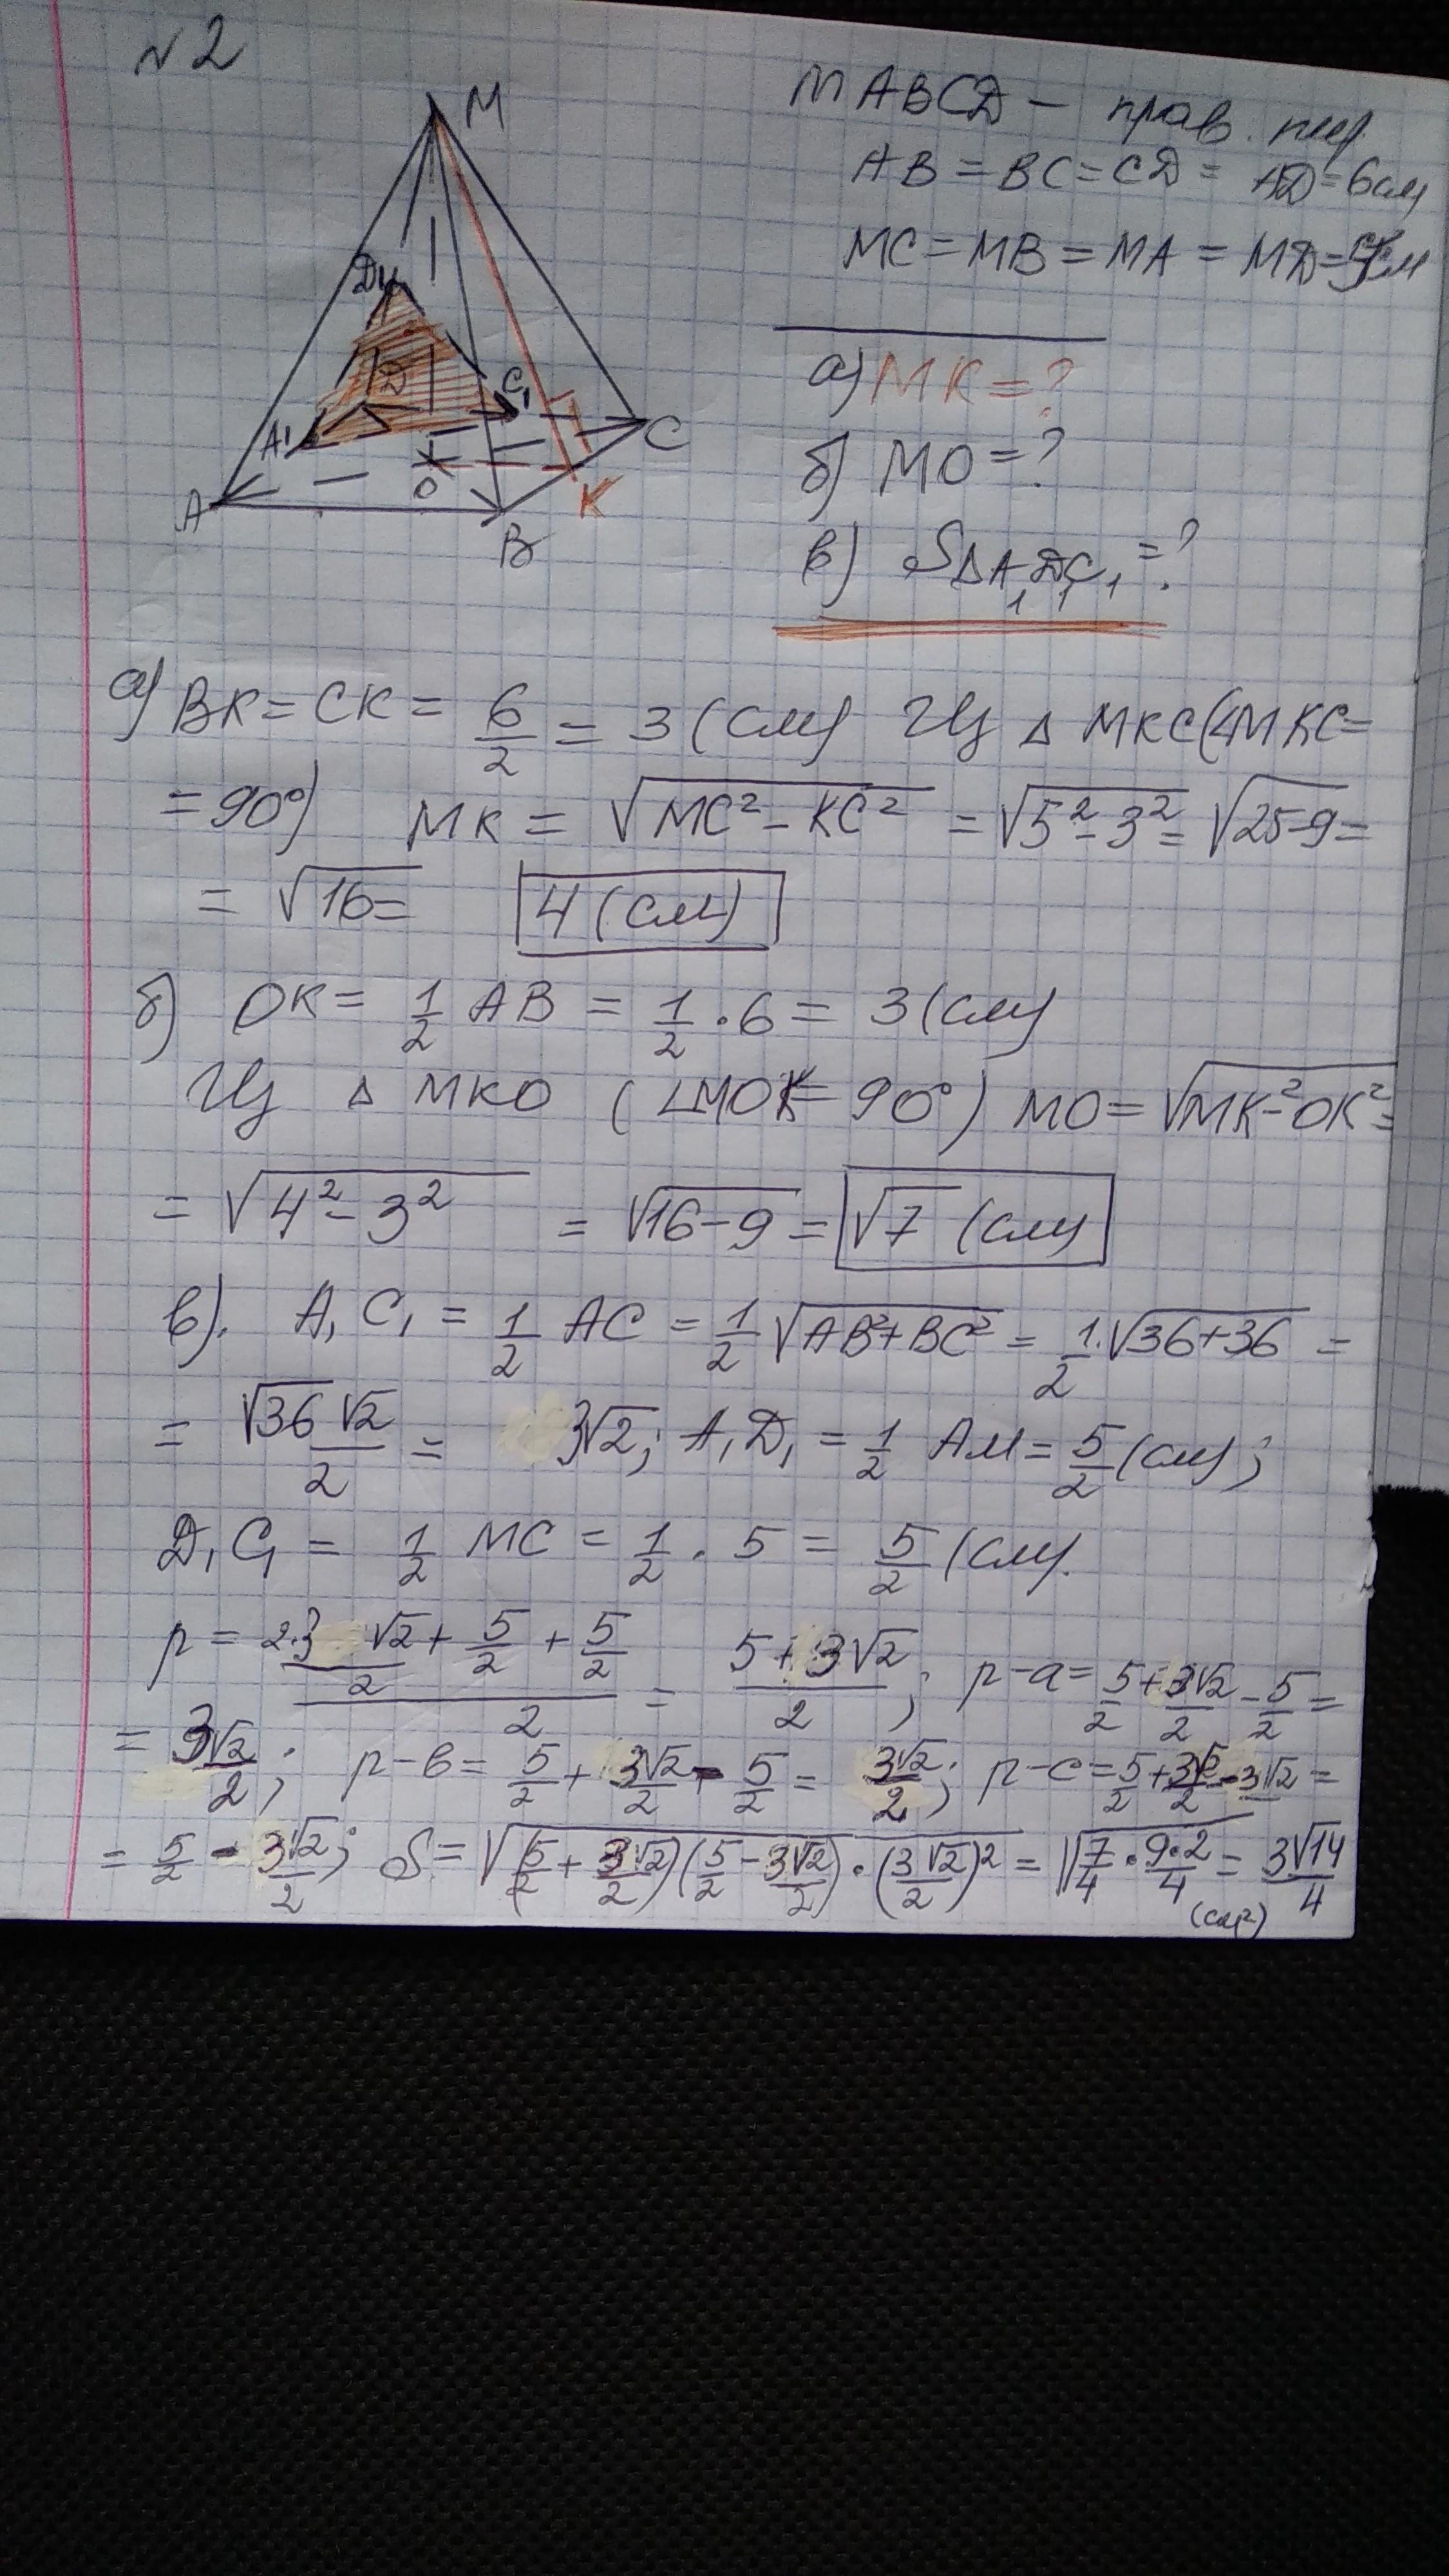 №2
M
D1
D
C1
A1
O
A
B
K
C
MABCD – прав. пир.
AB = BC = CD = AD = 6см
MC = MB = MA = MD = 5см
а) MK = ?
б) MO = ?
в) S△A1D1C1 = ?
а) BK = CK = 6/2 = 3 (см) Из △ MKC (∠MKC =
= 90°) MK = √(MC² - KC²) = √(5² - 3²) = √(25-9) =
= √16 = 4 (см)
б) OK = 1/2 AB = 1/2 · 6 = 3 (см)
Из △ MKO (∠MOK = 90°) MO = √(MK² - OK²) =
= √(4² - 3²) = √(16-9) = √7 (см)
в). A1C1 = 1/2 AC = 1/2 √(AB² + BC²) = 1/2 · √(36+36) =
= √36 √2 / 2 = 3√2; A1D1 = 1/2 AM = 5/2 (см);
D1C1 = 1/2 MC = 1/2 · 5 = 5/2 (см).
p = (2·3√2/2 + 5/2 + 5/2)/2 = (5+3√2)/2; p-a = 5/2 + 3√2/2 - 5/2 =
= 3√2/2; p-в = 5/2 + 3√2/2 - 5/2 = 3√2/2; p-c = 5/2 + 3√2/2 - 3√2 =
= 5/2 - 3√2/2; S = √((5/2 + 3√2/2)(5/2 - 3√2/2)·(3√2/2)²) = √(7/4 · 9·2/4) = 3√14/4
(см²)